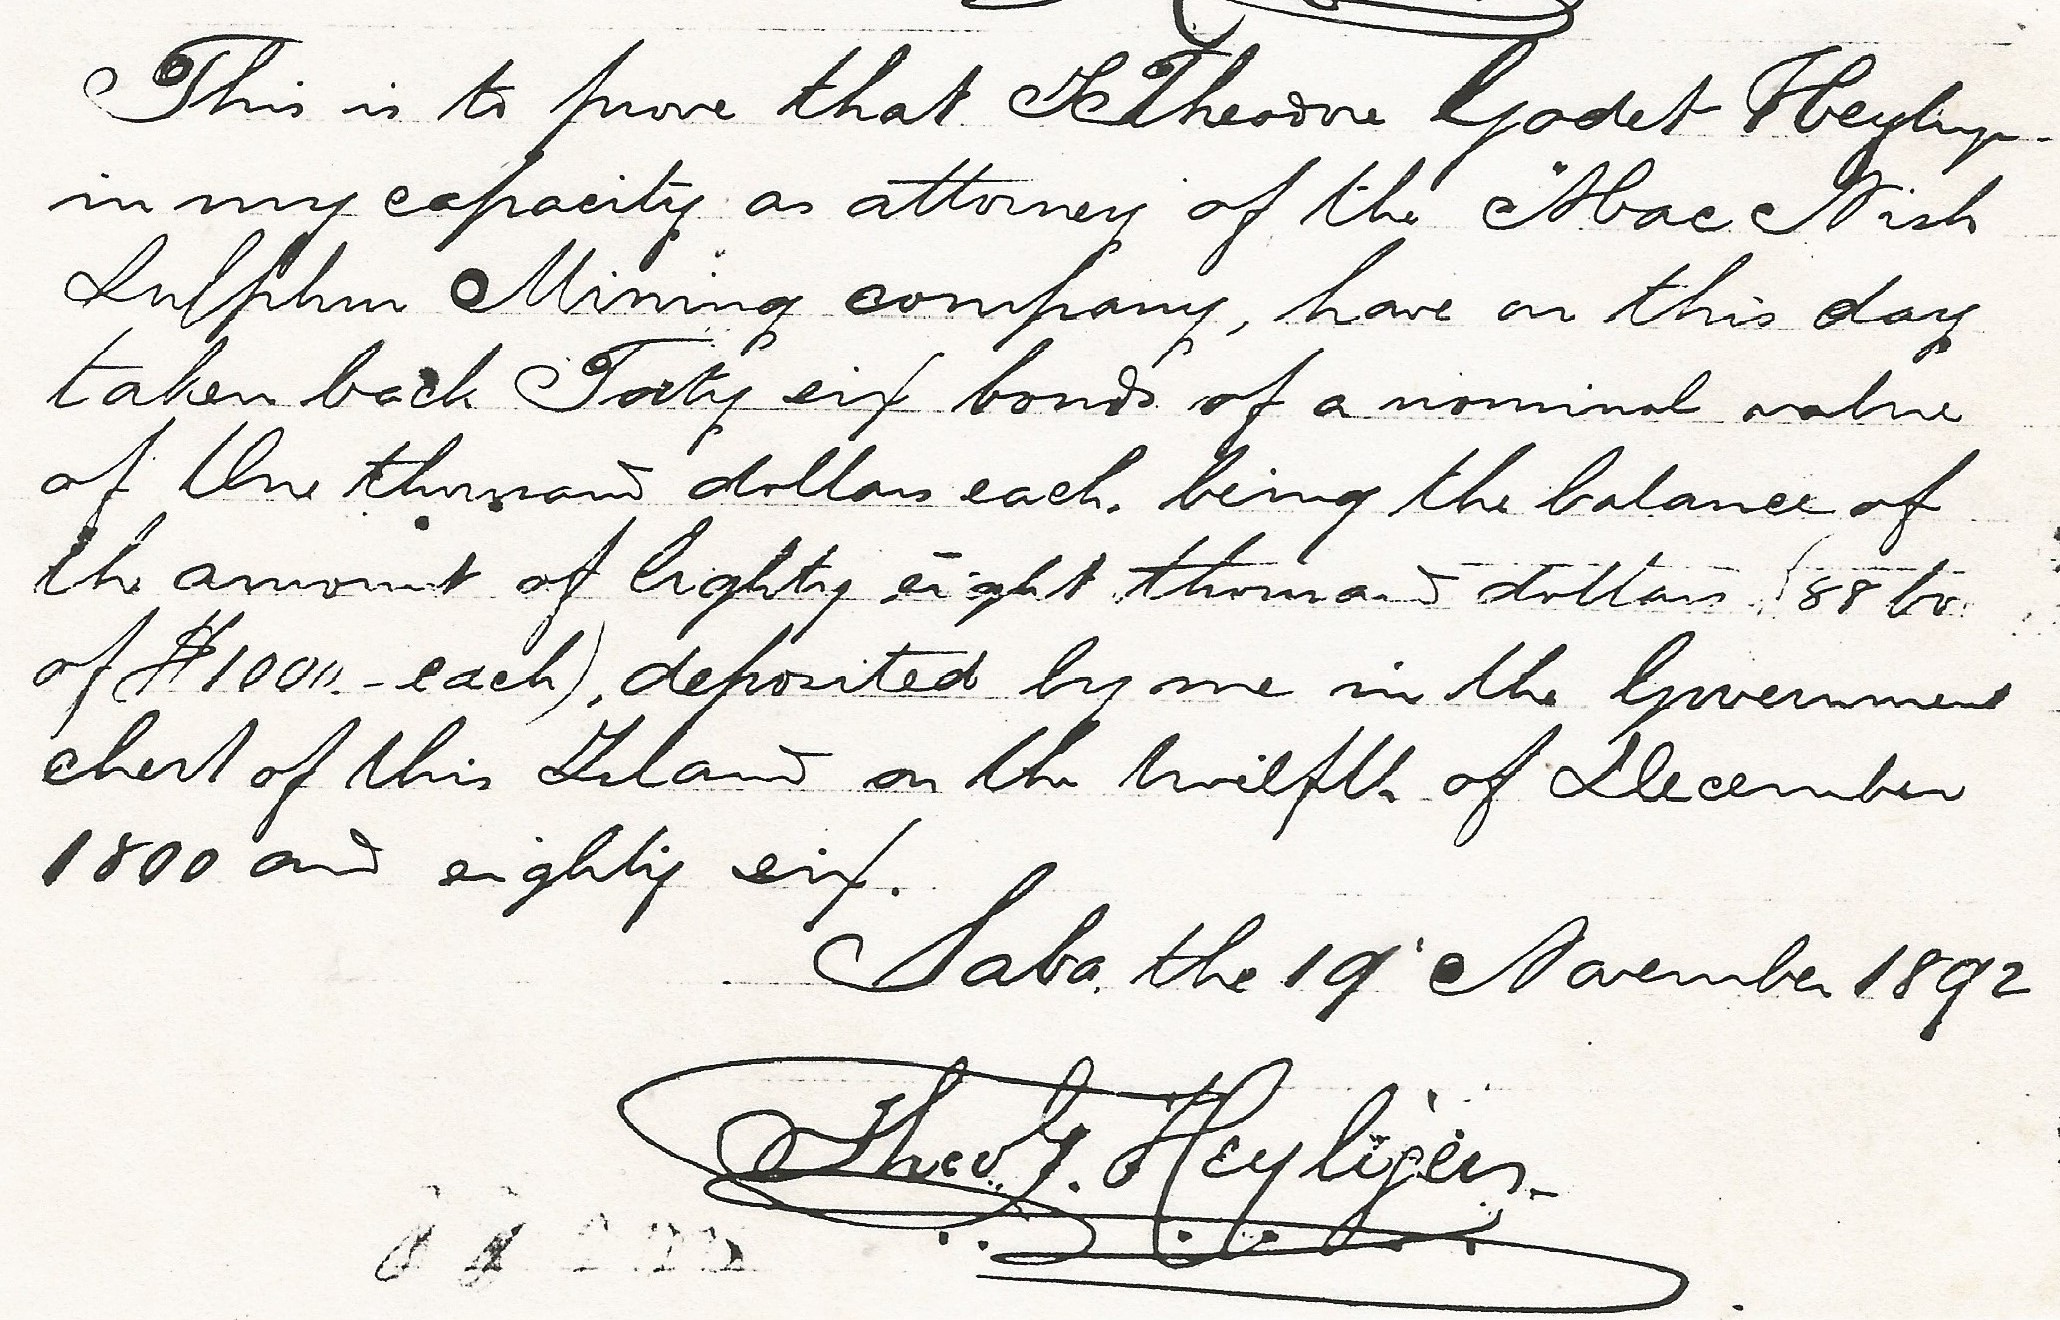 This is to prove that I Theodore Godet Heyliger
in my capacity as attorney of the "Mac Nish
Sulphur Mining company, have on this day
taken back Forty six bonds of a nominal value
of One thousand dollars each. being the balance of
the amount of Eighty eight thousand dollars (88 bo
of $1000.- each), deposited by me in the Government
chest of this Island on the twelfth of December
1800 and eighty six.
Saba, the 19' November 1892
Theo. G. Heyligers.